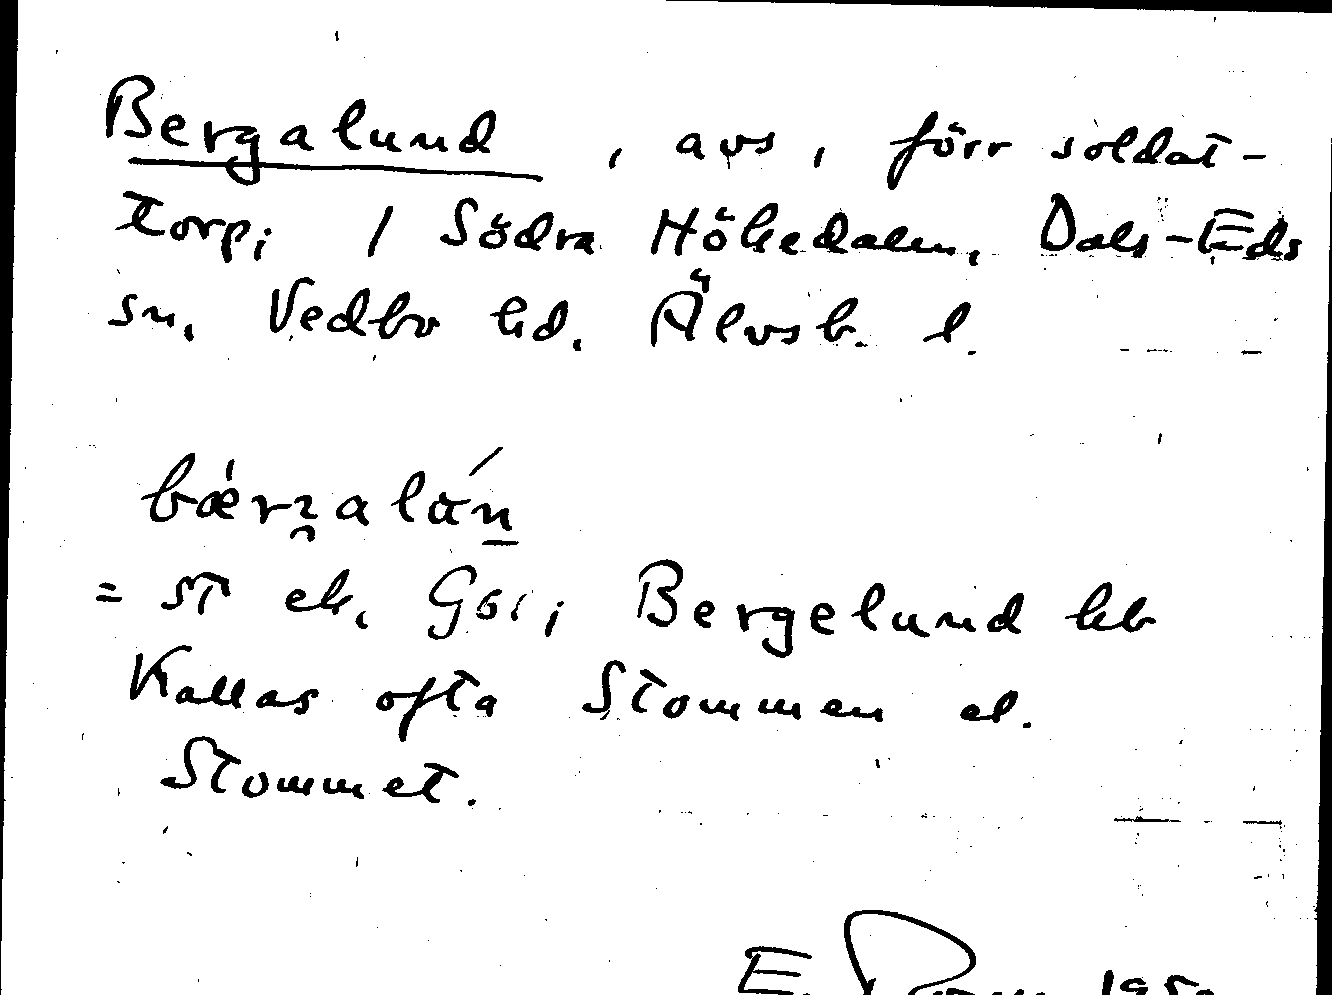 Bergalund, avs, förr soldat-
torp; / Södra Hökedalen, Dals-Eds
sn, Vedbo hd. Älvsb. l.
= st ek, Gsr; Bergelund hb
Kallas ofta Stommen el.
Stommet.
E.